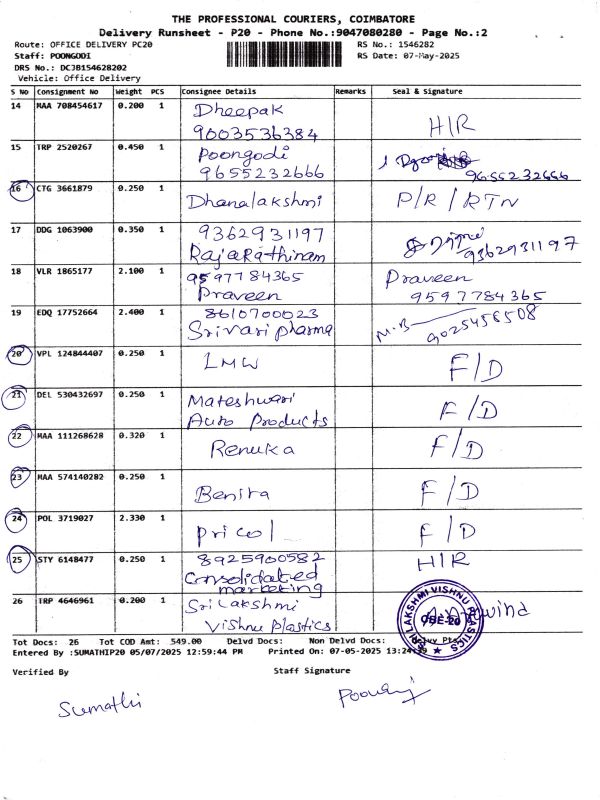 THE PROFESSIONAL COURIERS, COIMBATORE
Delivery Runsheet - P20 - Phone No.:9047080280 - Page No.:2
Route: OFFICE DELIVERY PC20 RS No.: 1546282
Staff: POONGODI RS Date: 07-May-2025
DRS No.: DCJB154628202
Vehicle: Office Delivery
S No Consignment No Weight PCS Consignee Details Remarks Seal & Signature
14 MAA 708454617 0.200 1 Dheepak
9003536384 H/R
15 TRP 2520267 0.450 1 Poongodi
9655232666 9655232666
16 CTG 3661879 0.250 1 Dhanalakshmi P/R / RTN
17 DDG 1063900 0.350 1 9362931197
Rajarathinam 9362931197
18 VLR 1865177 2.100 1 9597784365 Praveen
Praveen 9597784365
19 EDQ 17752664 2.400 1 8610700023
Srivari pharma M.B 9025456508
20 VPL 124844407 0.250 1 LMW F/D
21 DEL 530432697 0.250 1 Mateshwari
Auto Products F/D
22 MAA 111268628 0.320 1 Renuka F/D
23 MAA 574140282 0.250 1 Benita F/D
24 POL 3719027 2.330 1 pricol F/D
25 STY 6148477 0.250 1 8925900582 H/R
Consolidated
marketing
26 TRP 4646961 0.200 1 Sri Lakshmi
Vishnu Plastics
SRI LAKSHMI VISHNU PLASTICS
CBE-20
Tot Docs: 26 Tot COD Amt: 549.00 Delvd Docs: Non Delvd Docs:
Entered By :SUMATHIP20 05/07/2025 12:59:44 PM Printed On: 07-05-2025
Verified By Staff Signature
Sumathi